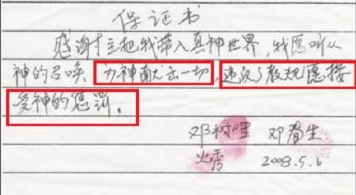 保证书
感谢主把我带入真神世界，我愿听从
神的召唤，为神献出一切，违反了教规愿接
受神的惩罚。
邓树 邓春生
火秀 2003.5.6